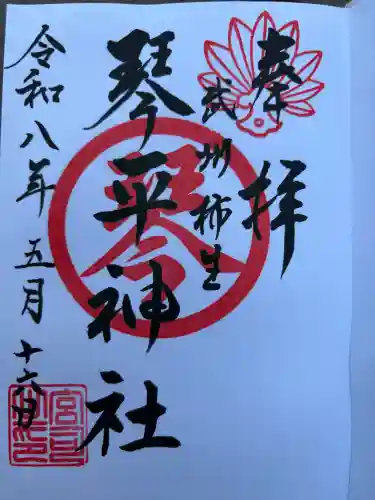 奉拝
武州柿生
琴平神社
令和八年五月十六日